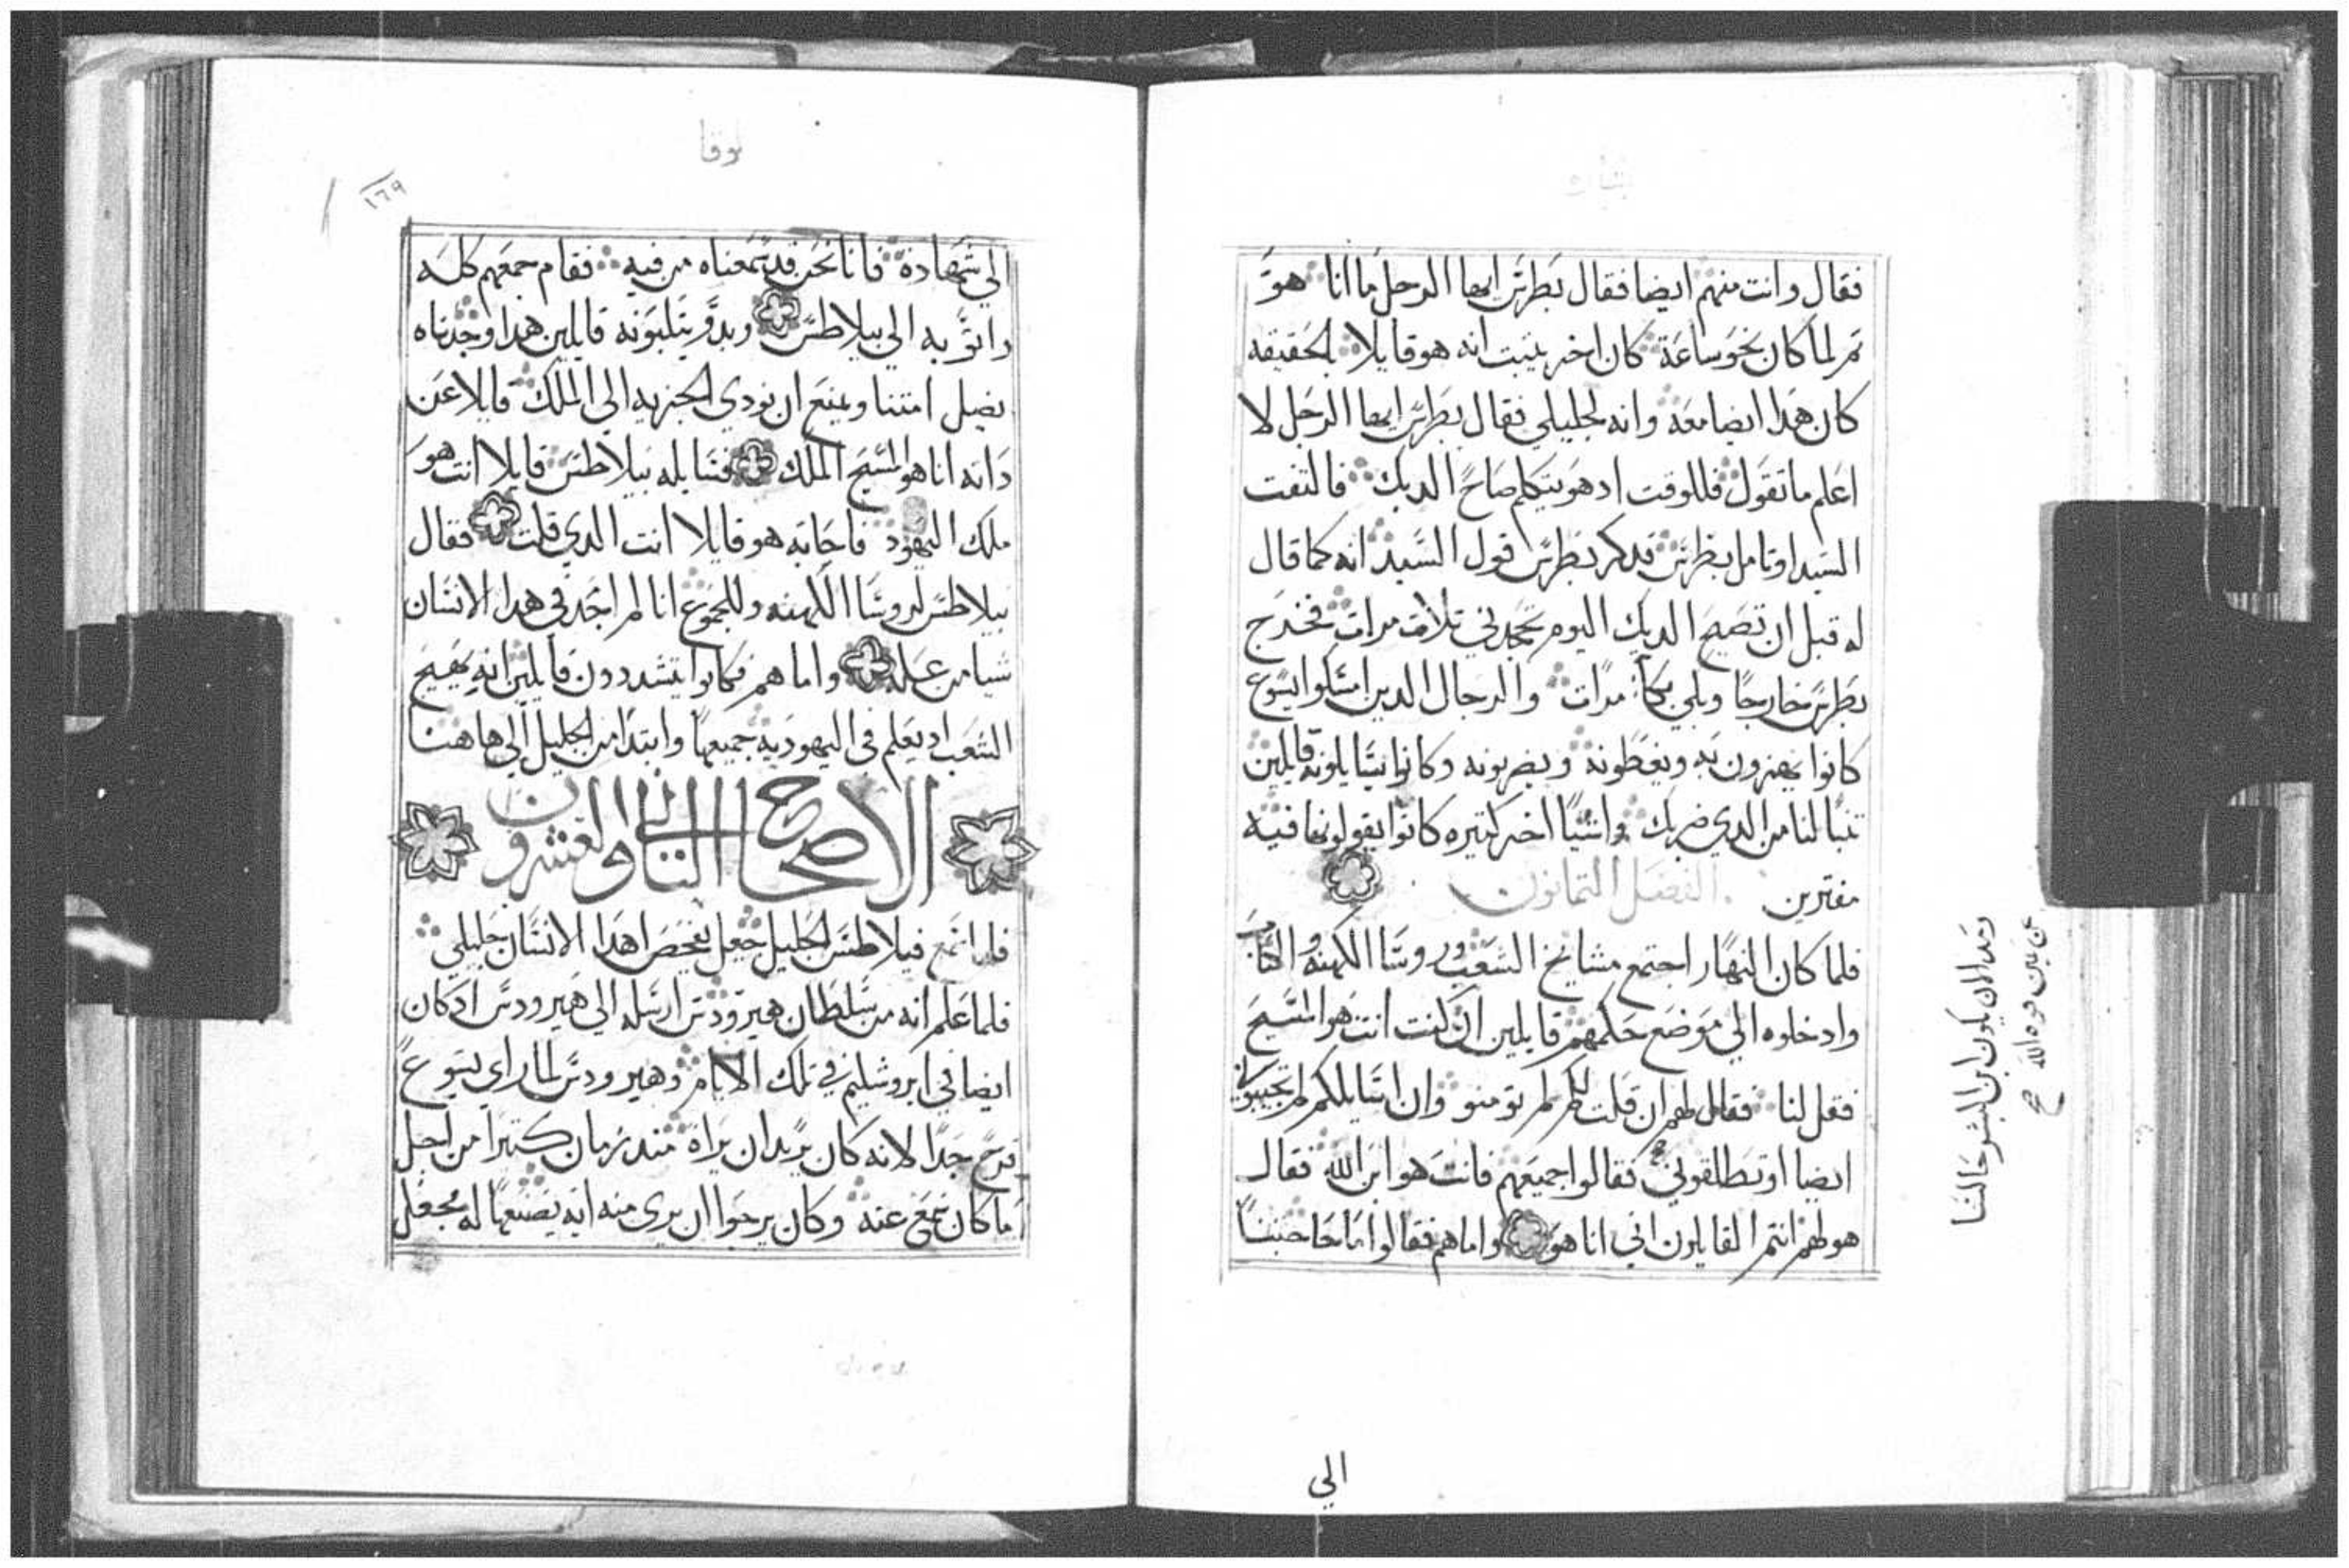 بشاره
فقال وانت منهم ايضا فقال بطرس ايها الرجل ما انا هو
تم لما كان نحو ساعة كان اخر يتبت انه هو قايلا بالحقيقه
كان هدا ايضا معه وانه لجليلي فقال بطرس ايها الرجل لا
اعلم ما تقول فللوقت اد هو يتكلم صاح الديك فالتفت
السيد او تامل بطرس فدكر بطرس قول السيد انه كما قال
له قبل ان تصيح الديك اليوم تجحدني تلات مرات فخرج
بطرس خارجا وبكي بكا مرات والرجال الدين امسكوا يسوع
كانوا يهزون به ويغطونه ويضربونه وكانوا يسايلونه قايلين
تنبا لنا من الدي ضربك واشيا اخر كتيره كانوا يقولونها فيه
مفترين الفصل التمانون
فلما كان النهار اجتمع مشايخ الشعب وروسا الكهنه والكتاب
وادخلوه الي موضع حكمهم قايلين ان كنت انت هو المسيح
فقل لنا فقال لهم ان قلت لكم لم تومنو وان اسايلكم لم تجيبوني
ايضا او تطلقوني فقالوا جميعهم فانت هو ابن الله فقال
هو لهم انتم القايلون اني انا هو واما هم فقالوا ما حاجتنا
ومند الان يكون ابن البشر جالسا
عن يمين قوه الله صح
الي
لوقا
١٦٩
الي شهادة فانا نحن قد سمعناه من فيه فقام جمعهم كله
واتو به الي بيلاطس وبدو يتلبونه قايلين هدا وجدناه
يضل امتنا ويمنع ان نودي الجزيه الي الملك قايلا عن
داته انا هو المسيح الملك فسايله بيلاطس قايلا انت هو
ملك اليهود فاجابه هو قايلا انت الدي قلت فقال
بيلاطس لروسا الكهنه وللجموع انا لم اجد في هدا الانسان
شيا من عله واما هم فكانوا يتشددون قايلين انه يهيج
الشعب اد يعلم في اليهوديه جميعها وابتدا من الجليل الي هاهنا
الاصحاح التاني والعشرون
فلما سمع فيلاطس الجليل جعل يفحص اهدا الانسان جليلي
فلما علم انه من سلطان هيرودس ارسله الي هيرودس اد كان
ايضا في ايروشليم في تلك الايام وهيرودس لما راي يسوع
فرح جدا لانه كان يريد ان يراه مند زمان كتيرا من اجل
ما كان سمع عنه وكان يرجوا ان يري منه ايه يصنعها له فجعل